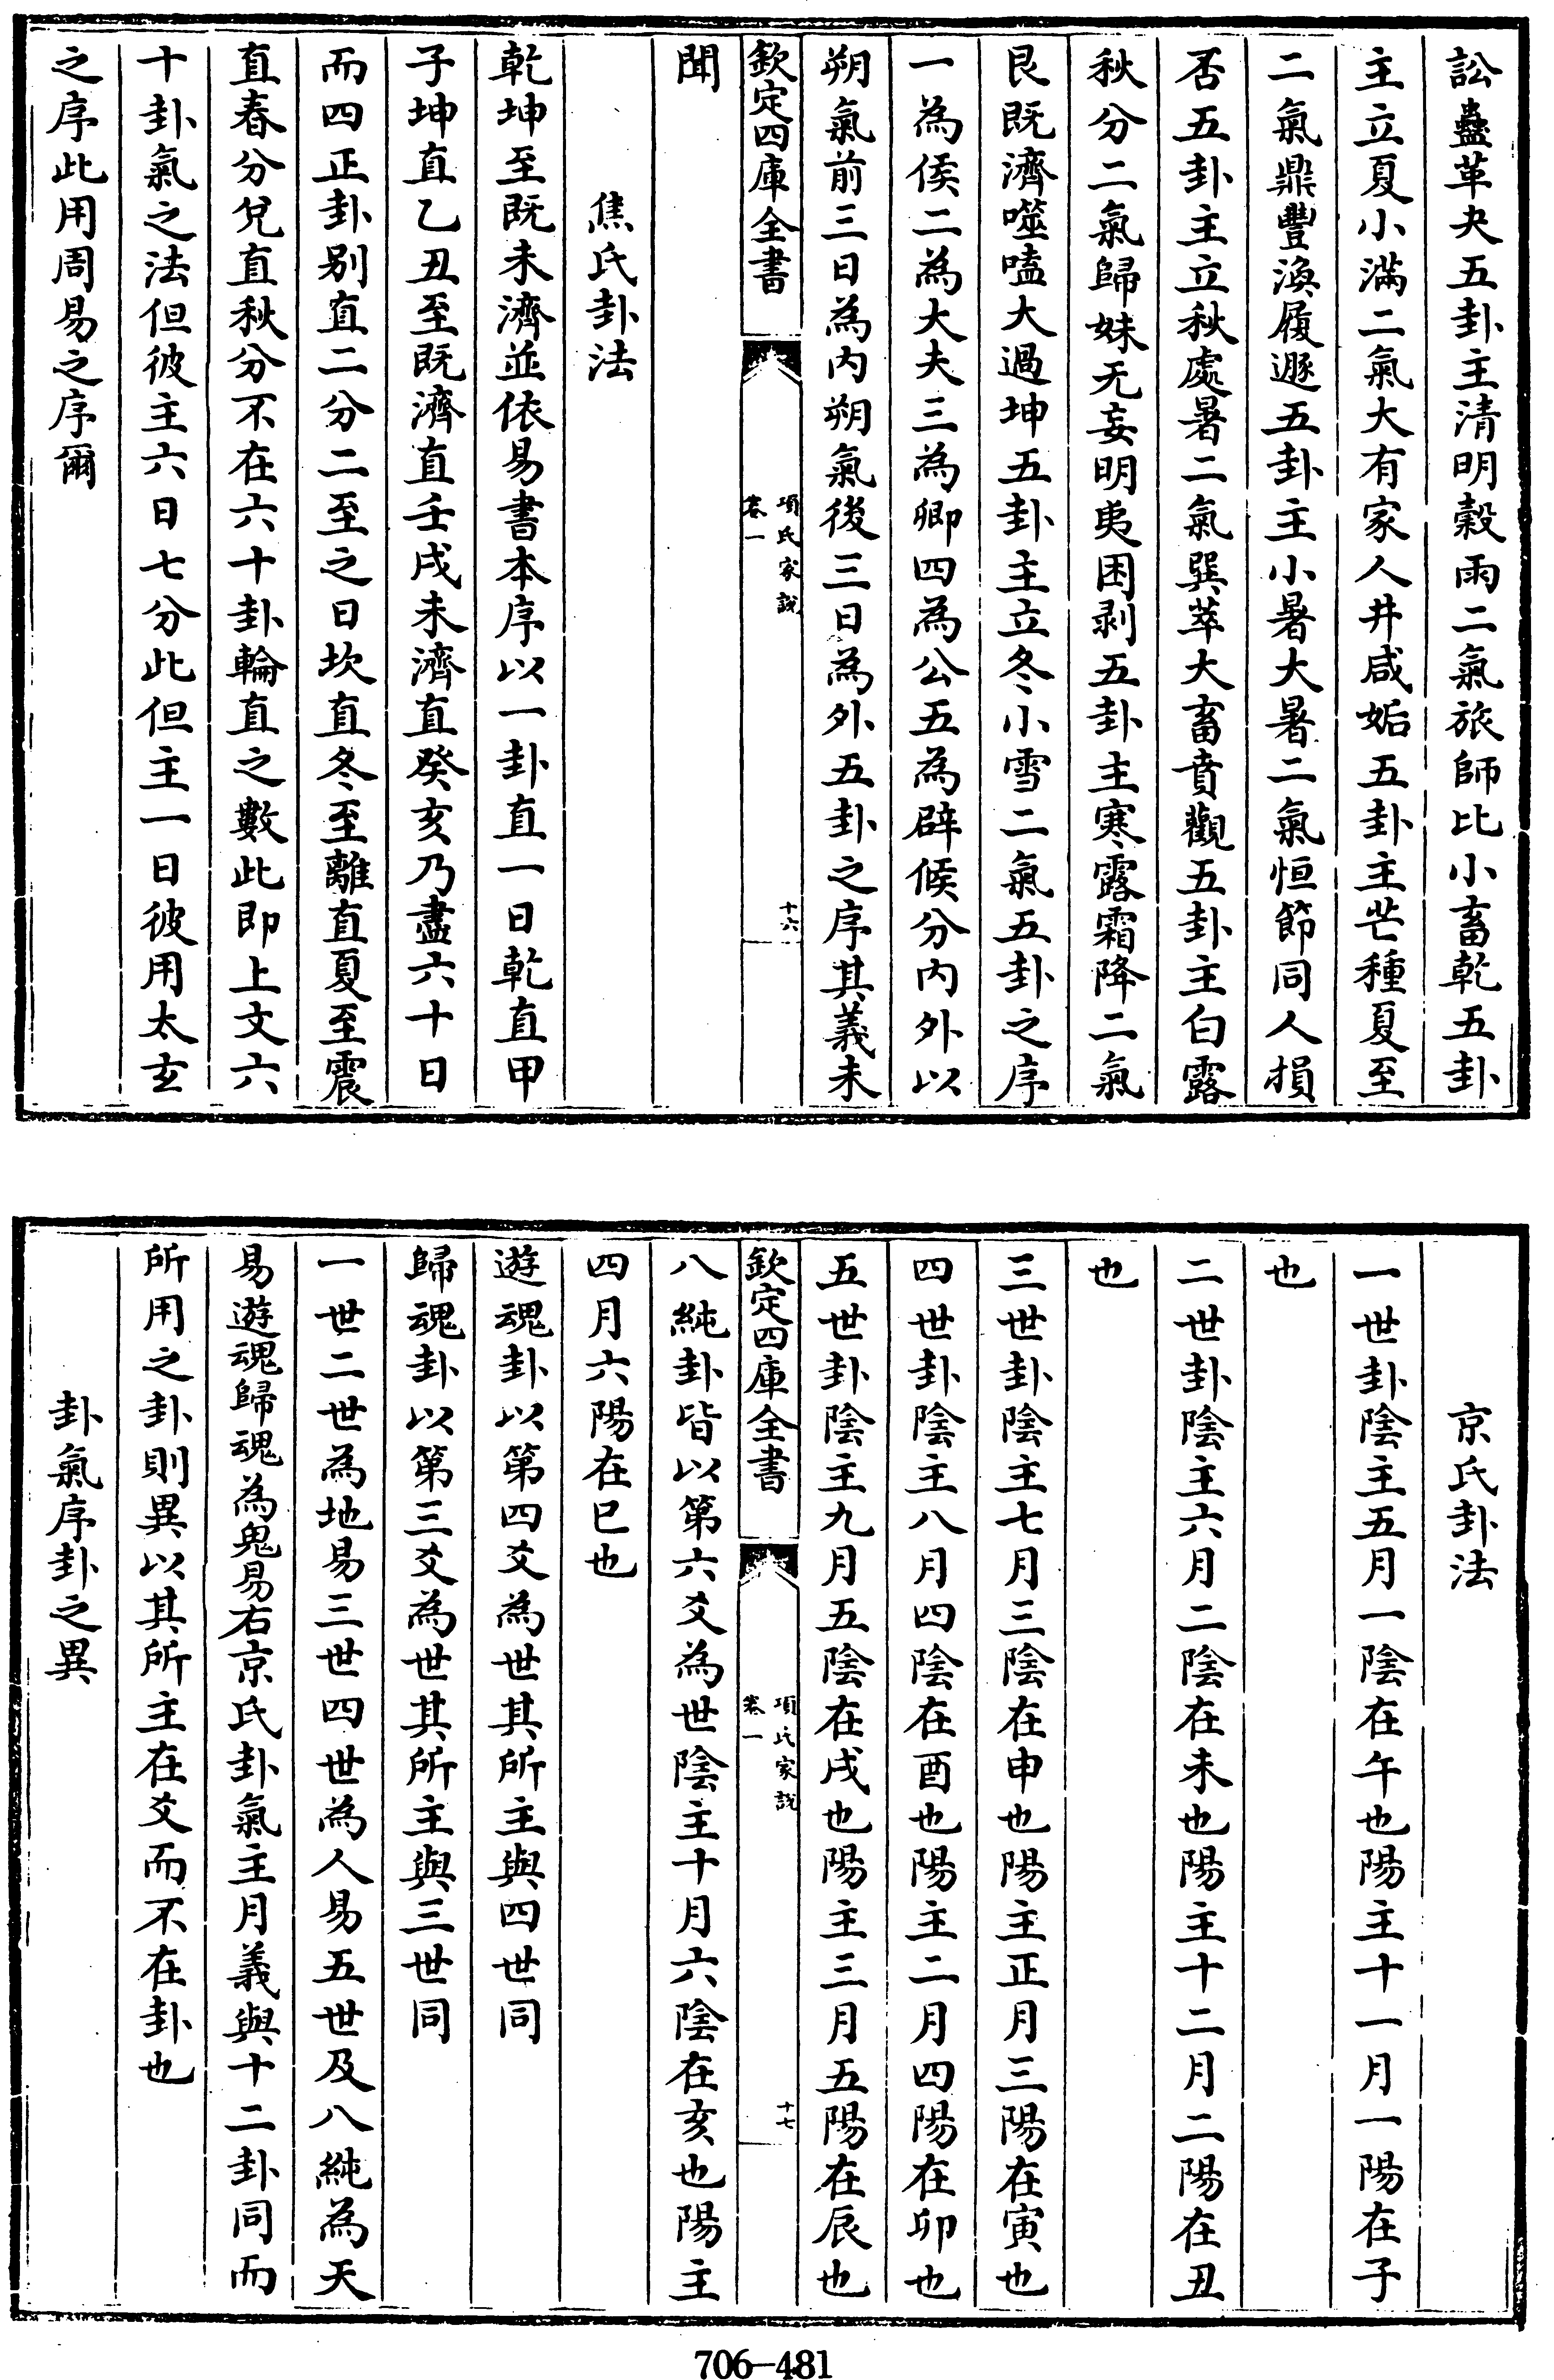 訟蠱革夬五卦主清明穀雨二氣旅師比小畜乾五卦
主立夏小滿二氣大有家人井咸姤五卦主芒種夏至
二氣鼎豐渙履遯五卦主小暑大暑二氣恒節同人損
否五卦主立秋處暑二氣巽萃大畜賁觀五卦主白露
秋分二氣歸妹无妄明夷困剥五卦主寒露霜降二氣
艮既濟噬嗑大過坤五卦主立冬小雪二氣五卦之序
一為侯二為大夫三為卿四為公五為辟候分内外以
朔氣前三日為内朔氣後三日為外五卦之序其義未
欽定四庫全書
項氏家說
卷一
十六
聞
焦氏卦法
乾坤至既未濟並依易書本序以一卦直一日乾直甲
子坤直乙丑至既濟直壬戌未濟直癸亥乃盡六十日
而四正卦别直二分二至之日坎直冬至離直夏至震
直春分兌直秋分不在六十卦輪直之數此即上文六
十卦氣之法但彼主六日七分此但主一日彼用太玄
之序此用周易之序爾
京氏卦法
一世卦陰主五月一陰在午也陽主十一月一陽在子
也
二世卦陰主六月二陰在未也陽主十二月二陽在丑
也
三世卦陰主七月三陰在申也陽主正月三陽在寅也
四世卦陰主八月四陰在酉也陽主二月四陽在卯也
五世卦陰主九月五陰在戌也陽主三月五陽在辰也
欽定四庫全書
項氏家說
卷一
十七
八純卦皆以第六爻為世陰主十月六陰在亥也陽主
四月六陽在巳也
遊魂卦以第四爻為世其所主與四世同
歸魂卦以第三爻為世其所主與三世同
一世二世為地易三世四世為人易五世及八純為天
易遊魂歸魂為鬼易右京氏卦氣主月義與十二卦同而
所用之卦則異以其所主在爻而不在卦也
卦氣序卦之異
706-481